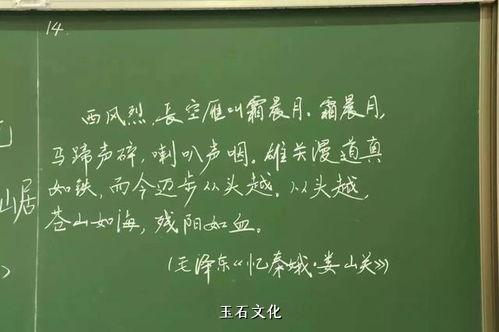 14.
西风烈,長空雁叫霜晨月。霜晨月,
马蹄声碎,喇叭声咽。雄关漫道真
如铁,而今迈步从头越。从头越,
苍山如海,残阳如血。
(毛泽东《忆秦娥·娄山关》)
山居
玉石文化